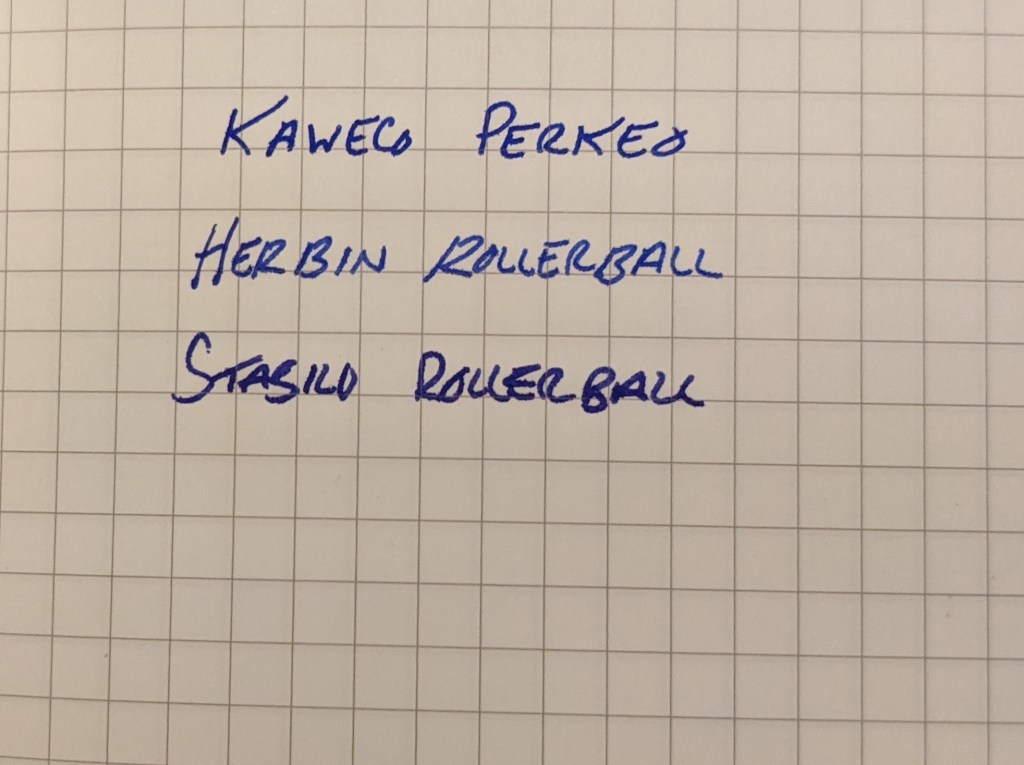 KAWECO PERKEO
HERBIN ROLLERBALL
STABILO ROLLERBALL